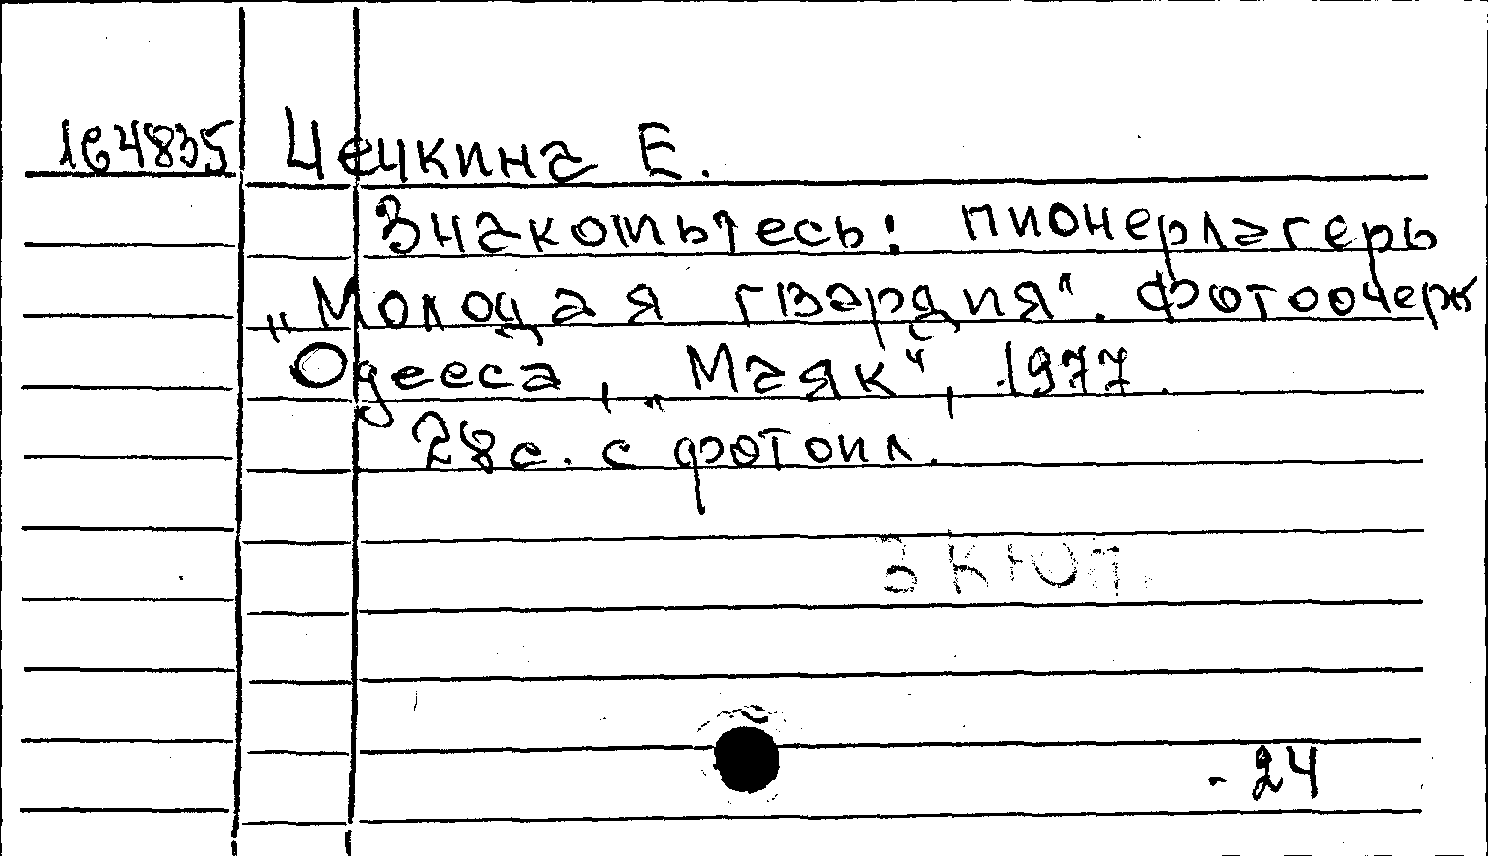 164835 Чечкина Е.
Знакомьтесь! пионерлагерь
„Молодая гвардия". Фотоочерк
Одесса, „Маяк", 1977.
28 с. с фотоил.
3 кюп.
-24